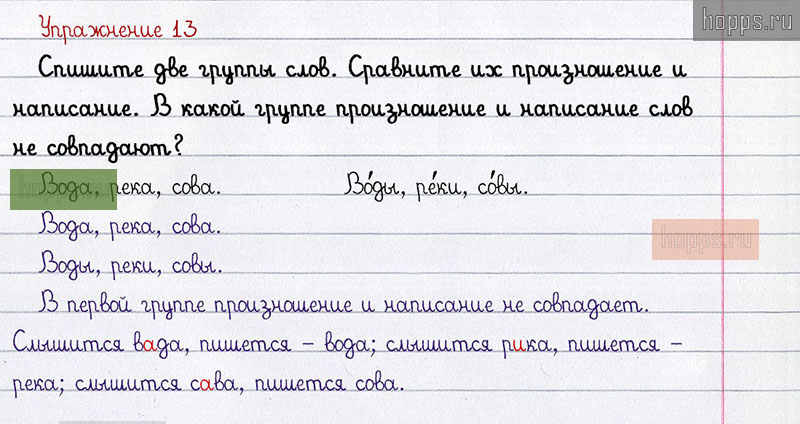 hopps.ru
Упражнение 13
Спишите две группы слов. Сравните их произношение и
написание. В какой группе произношение и написание слов
не совпадают?
Вода, река, сова. Во́ды, ре́ки, со́вы.
Вода, река, сова.
hopps.ru
Воды, реки, совы.
В первой группе произношение и написание не совпадает.
Слышится вада, пишется – вода; слышится рика, пишется –
река; слышится сава, пишется сова.